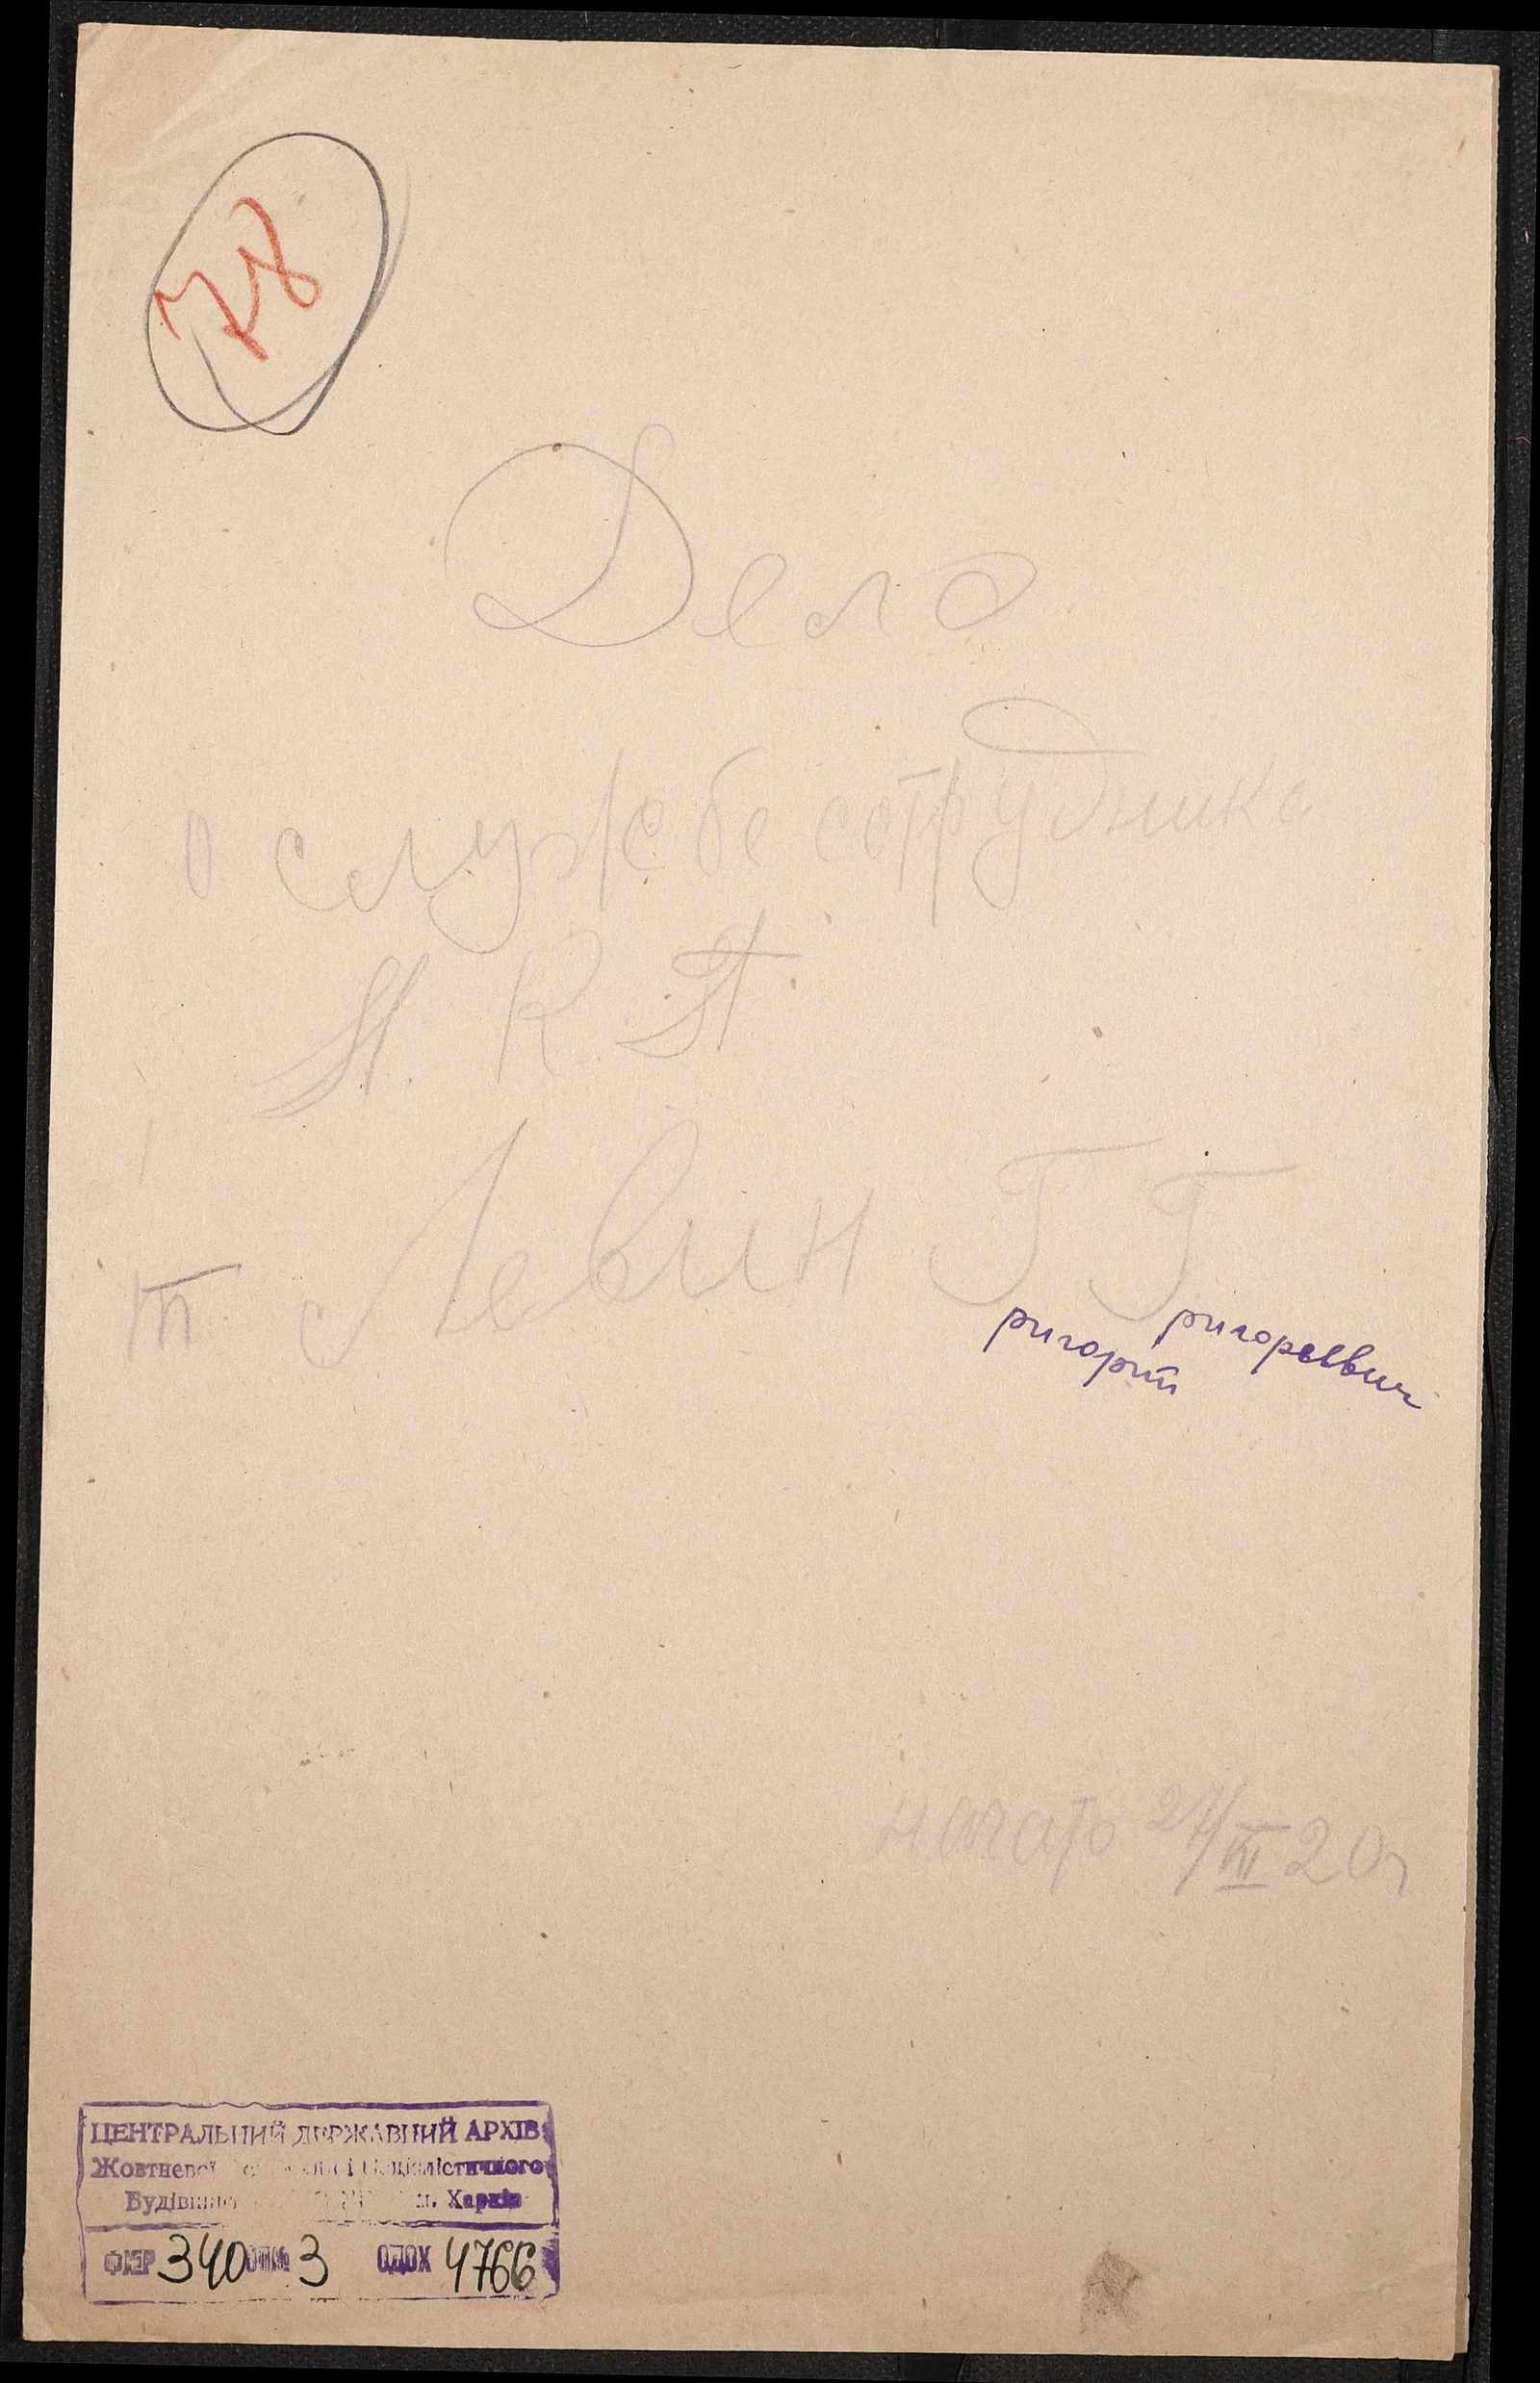 78
Дело
о службе сотрудника
Н. К. П.
т. Левин Г Г
ригорий ригорьевич
начато 27/III 20 г
ЦЕНТРАЛЬНИЙ ДЕРЖАВНИЙ АРХІВ
Жовтневої і соціалістичного
Будівництва м. Харків
ФКР 340 ОП№ 3 ОДОХ 4766